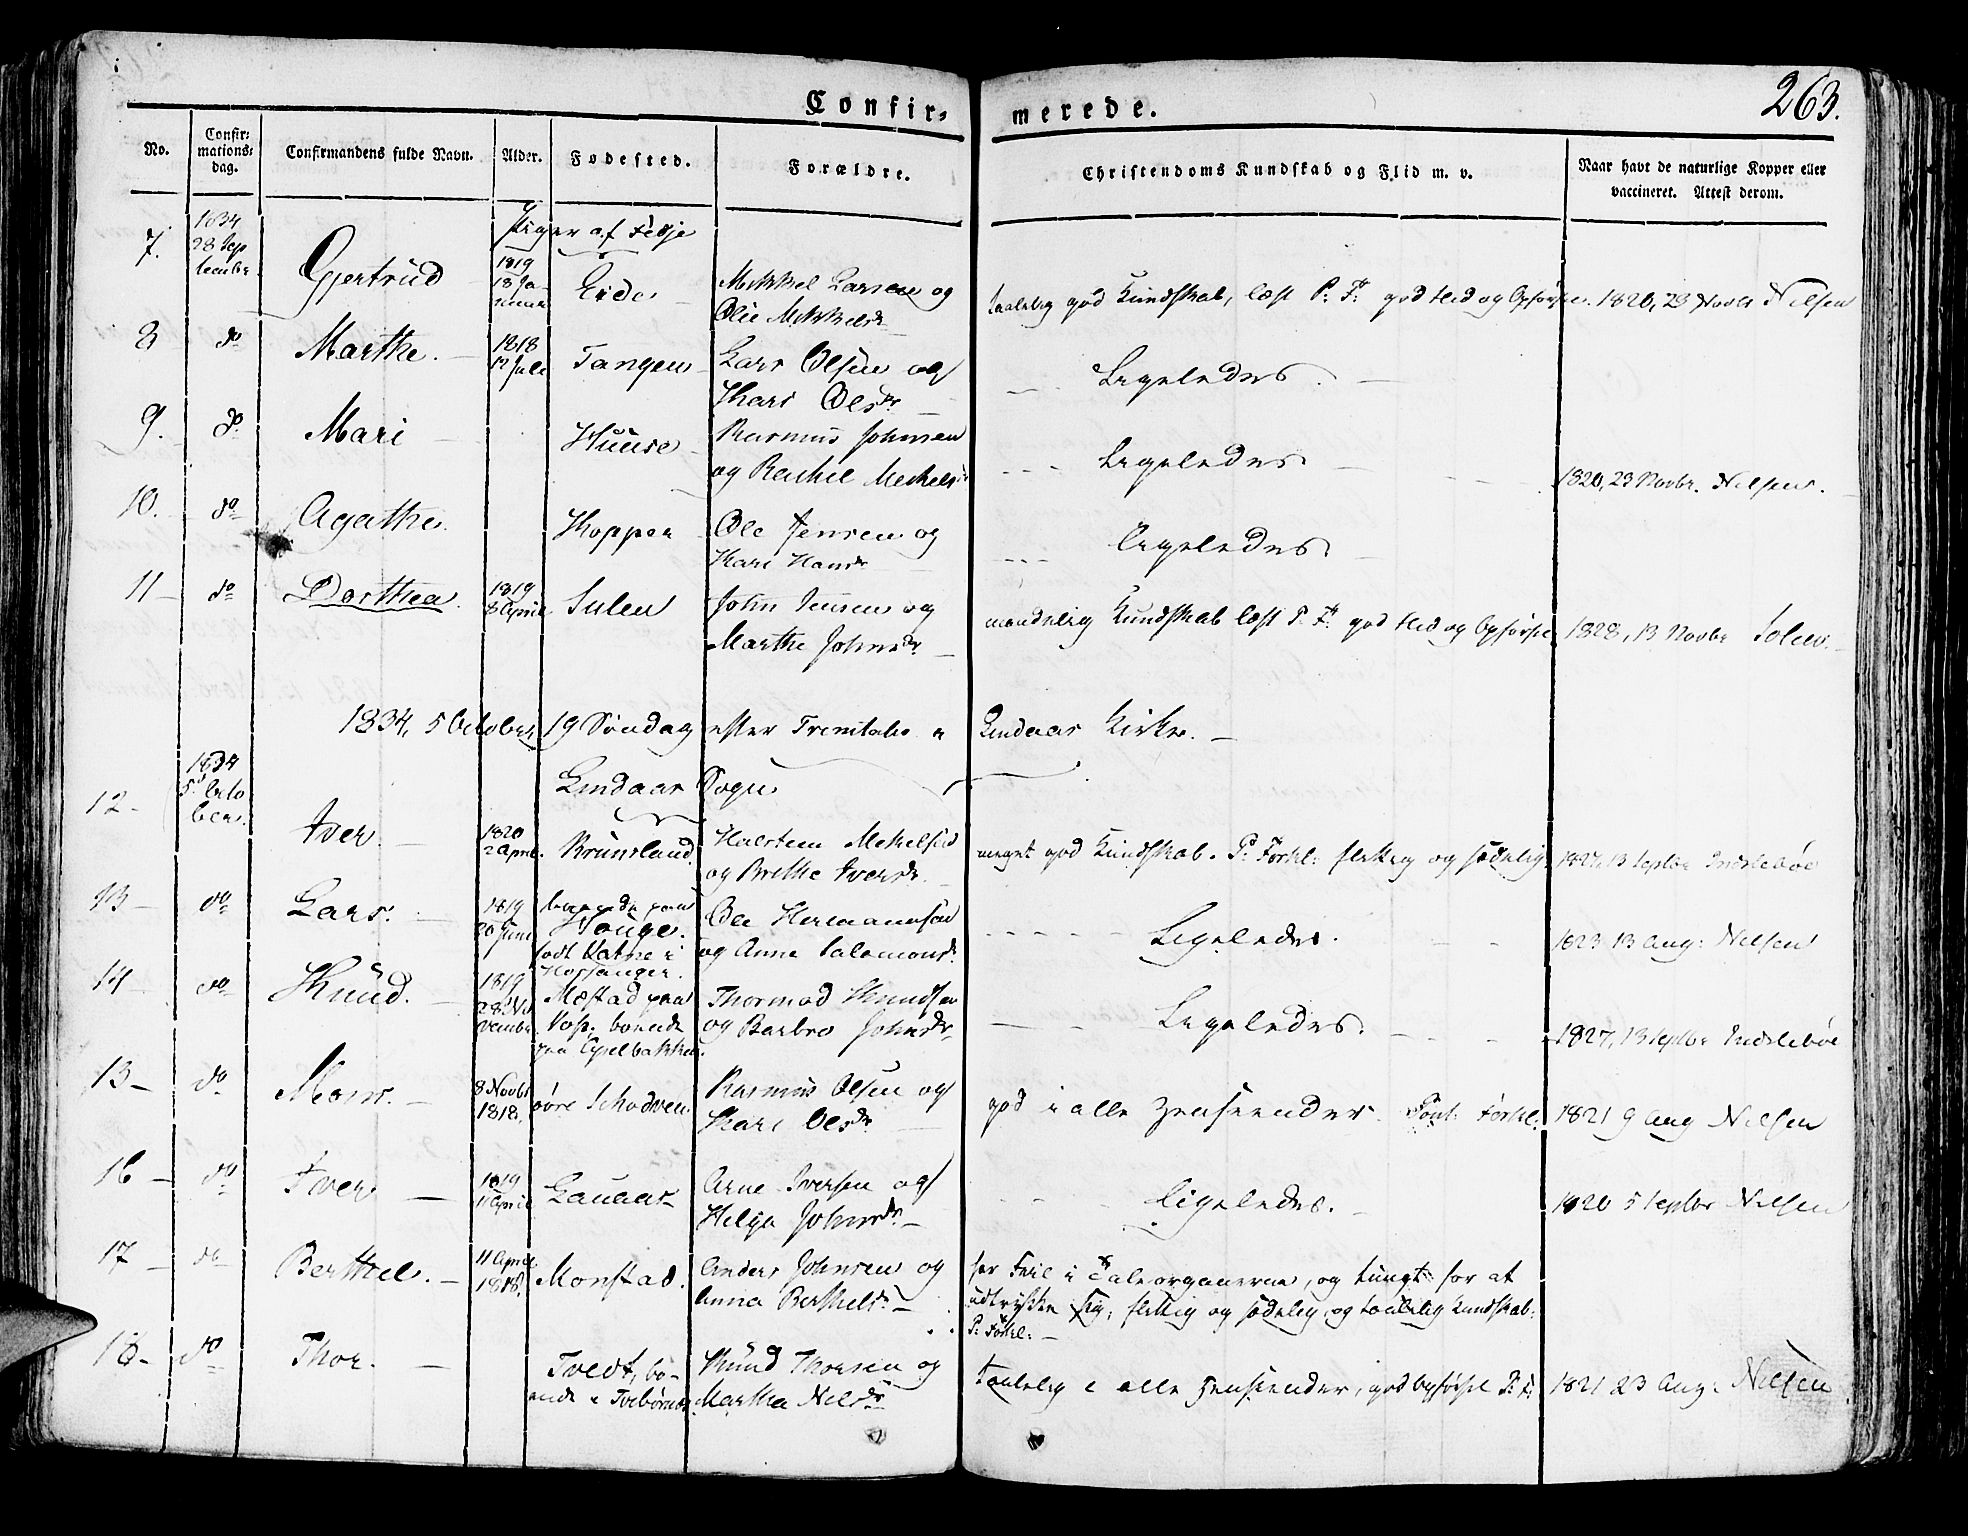 Confir- merede. 263.
No. Confirmationsdag. Confirmandens fulde Navn. Alder. Fødested. Forældre. Christendoms Kundskab og Flid m. v. Naar havt de naturlige Kopper eller vaccineret. Attest derom.
Piger af Fedje
7. 1834 28 September Gjertrud 1819 18 Januar Eide Mikkel Larsen og Olie Mikkelsdr taalelig god Kundskab, læst P. F. god Flid og Opførsel. 1820, 23 Novbr Nilsen
8 do Marthe. 1818 12 Juli Tangen Lars Olsen og Kari Olsdr Ligeledes.
9. do Mari Huuse Rasmus Johnsen og Rachel Mickels Ligeledes 1820, 23 Novbr. Nilsen.
10. do Agathe Kopper Ole Jensen og Kari Hansdr Ligeledes
11 do Dorthea 1819 8 April Sulen John Jensen og Marthe Johnsdr maadelig Kundskab læst P. F. god Flid og Opførsel 1828, 13 Novbr Solem
1834, 5 October 19 Søndag efter Trinitatis i Lindaas Kirke.
Lindaas Sogn
12 1834 5 October Iver 1820 2 April Bruusland Halsteen Mikelsen og Brithe Iversdr meget god Kundskab. P. Forkl: flittig og sædelig 1827, 13 Septbr Indslebøe
13 do Lars. 1819 20 Juni boende paa Houge. født Katne i Hosanger. Ole Hermansen og Anna Salamonsdr Ligeledes. 1823 13 Aug: Nilsen
14 do Knud. 1819 28 November Mæstad paa Voss, boende paa Ole Thormod Knudsen og Barbro Johnsdr Ligeledes. 1827, 13 Septbr Indslebøe
15 do Mons. 8 Novbr 1818. øvre Schodven Rasmus Olsen og Kari Olsdr god i alle Henseender Pont: Forkl: 1821 9 Aug Nilsen
16 do Iver 1819 11 April Lauaas Arne Iversen og Helga Johnsdr Ligeledes. 1820 5 Septbr Nilsen
17 do Berthel. 11 April 1818. Monstad. Anders Johnsen og Anna Berthelsdr har Feil i Taleorganerne, og tungt for at udtrykke sig, flittig og sædelig, og taalelig Kundskab. P. Forkl:
18 do Thor. Tvedt, boende i Knud Thorsen og Martha Nilsdr taalelig i alle Henseender, god Opførsel P. F: 1821 23 Aug: Nilsen